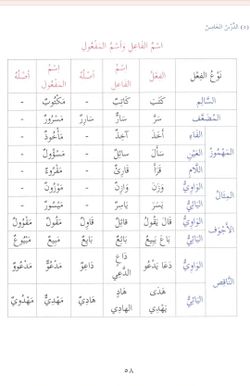 (٥) الدَّرْسُ الخَامِسُ
اسْمُ الفَاعِلِ وَاسْمُ المَفْعُولِ
نَوْعُ الفِعْلِ الفِعْلُ اسْمُ الفاعِلِ أَصْلُهُ اسْمُ المَفْعُولِ أَصْلُهُ
السَّالِمُ كَتَبَ كَاتِبٌ - مَكْتُوبٌ -
المُضَعَّفُ سَرَّ سَارٌّ سَارِرٌ مَسْرُورٌ -
المَهْمُوزُ الفَاءِ أَخَذَ آخِذٌ - مَأْخُوذٌ -
العَيْنِ سَأَلَ سَائِلٌ - مَسْؤُولٌ -
اللَّامِ قَرَأَ قَارِئٌ - مَقْرُوءٌ -
المِثَالُ الوَاوِيُّ وَزَنَ وَازِنٌ - مَوْزُونٌ -
اليَائِيُّ يَسَرَ يَاسِرٌ - مَيْسُورٌ -
الأَجْوَفُ الوَاوِيُّ قَالَ يَقُولُ قَائِلٌ قَاوِلٌ مَقُولٌ مَقْوُولٌ
اليَائِيُّ بَاعَ يَبِيعُ بَائِعٌ بَايِعٌ مَبِيعٌ مَبْيُوعٌ
النَّاقِصُ الوَاوِيُّ دَعَا يَدْعُو دَاعٍ الدَّاعِي دَاعِوٌ مَدْعُوٌّ مَدْعُووٌ
اليَائِيُّ هَدَى يَهْدِي هَادٍ الهادِي هَادِيٌ مَهْدِيٌّ مَهْدُويٌ
٥٨